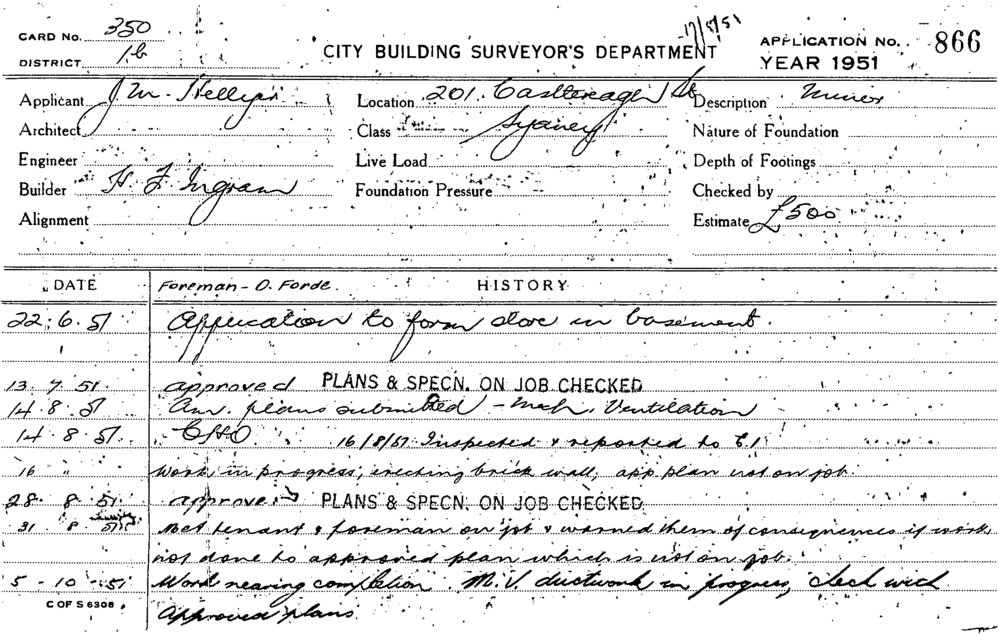 CARD No. 350
17/8/51
DISTRICT 1b
CITY BUILDING SURVEYOR'S DEPARTMENT
APPLICATION No. 866
YEAR 1951
Applicant J. M. Hellyer Location 201 Castlereagh St Description Minor
Architect Class Sydney Nature of Foundation
Engineer Live Load Depth of Footings
Builder H F Ingram Foundation Pressure Checked by
Alignment Estimate £500
DATE Foreman - O. Forde. HISTORY
22.6.51 Application to form store in basement.
13.7.51 approved PLANS & SPECN. ON JOB CHECKED
14.8.51 Am. plans submitted - Mech. Ventilation
14.8.51 CHO 16/8/51 Inspected & reported to C.I
16 " Work in progress, erecting brick wall, app plan not on job.
28.8.51 approved PLANS & SPECN. ON JOB CHECKED
31 8 51 Met tenant & foreman on job & warned them of consequences if work
not done to approved plan which is not on job.
5-10-51 Work nearing completion M.V. ductwork in progress, check with
Approved plans.
C OF S 6308